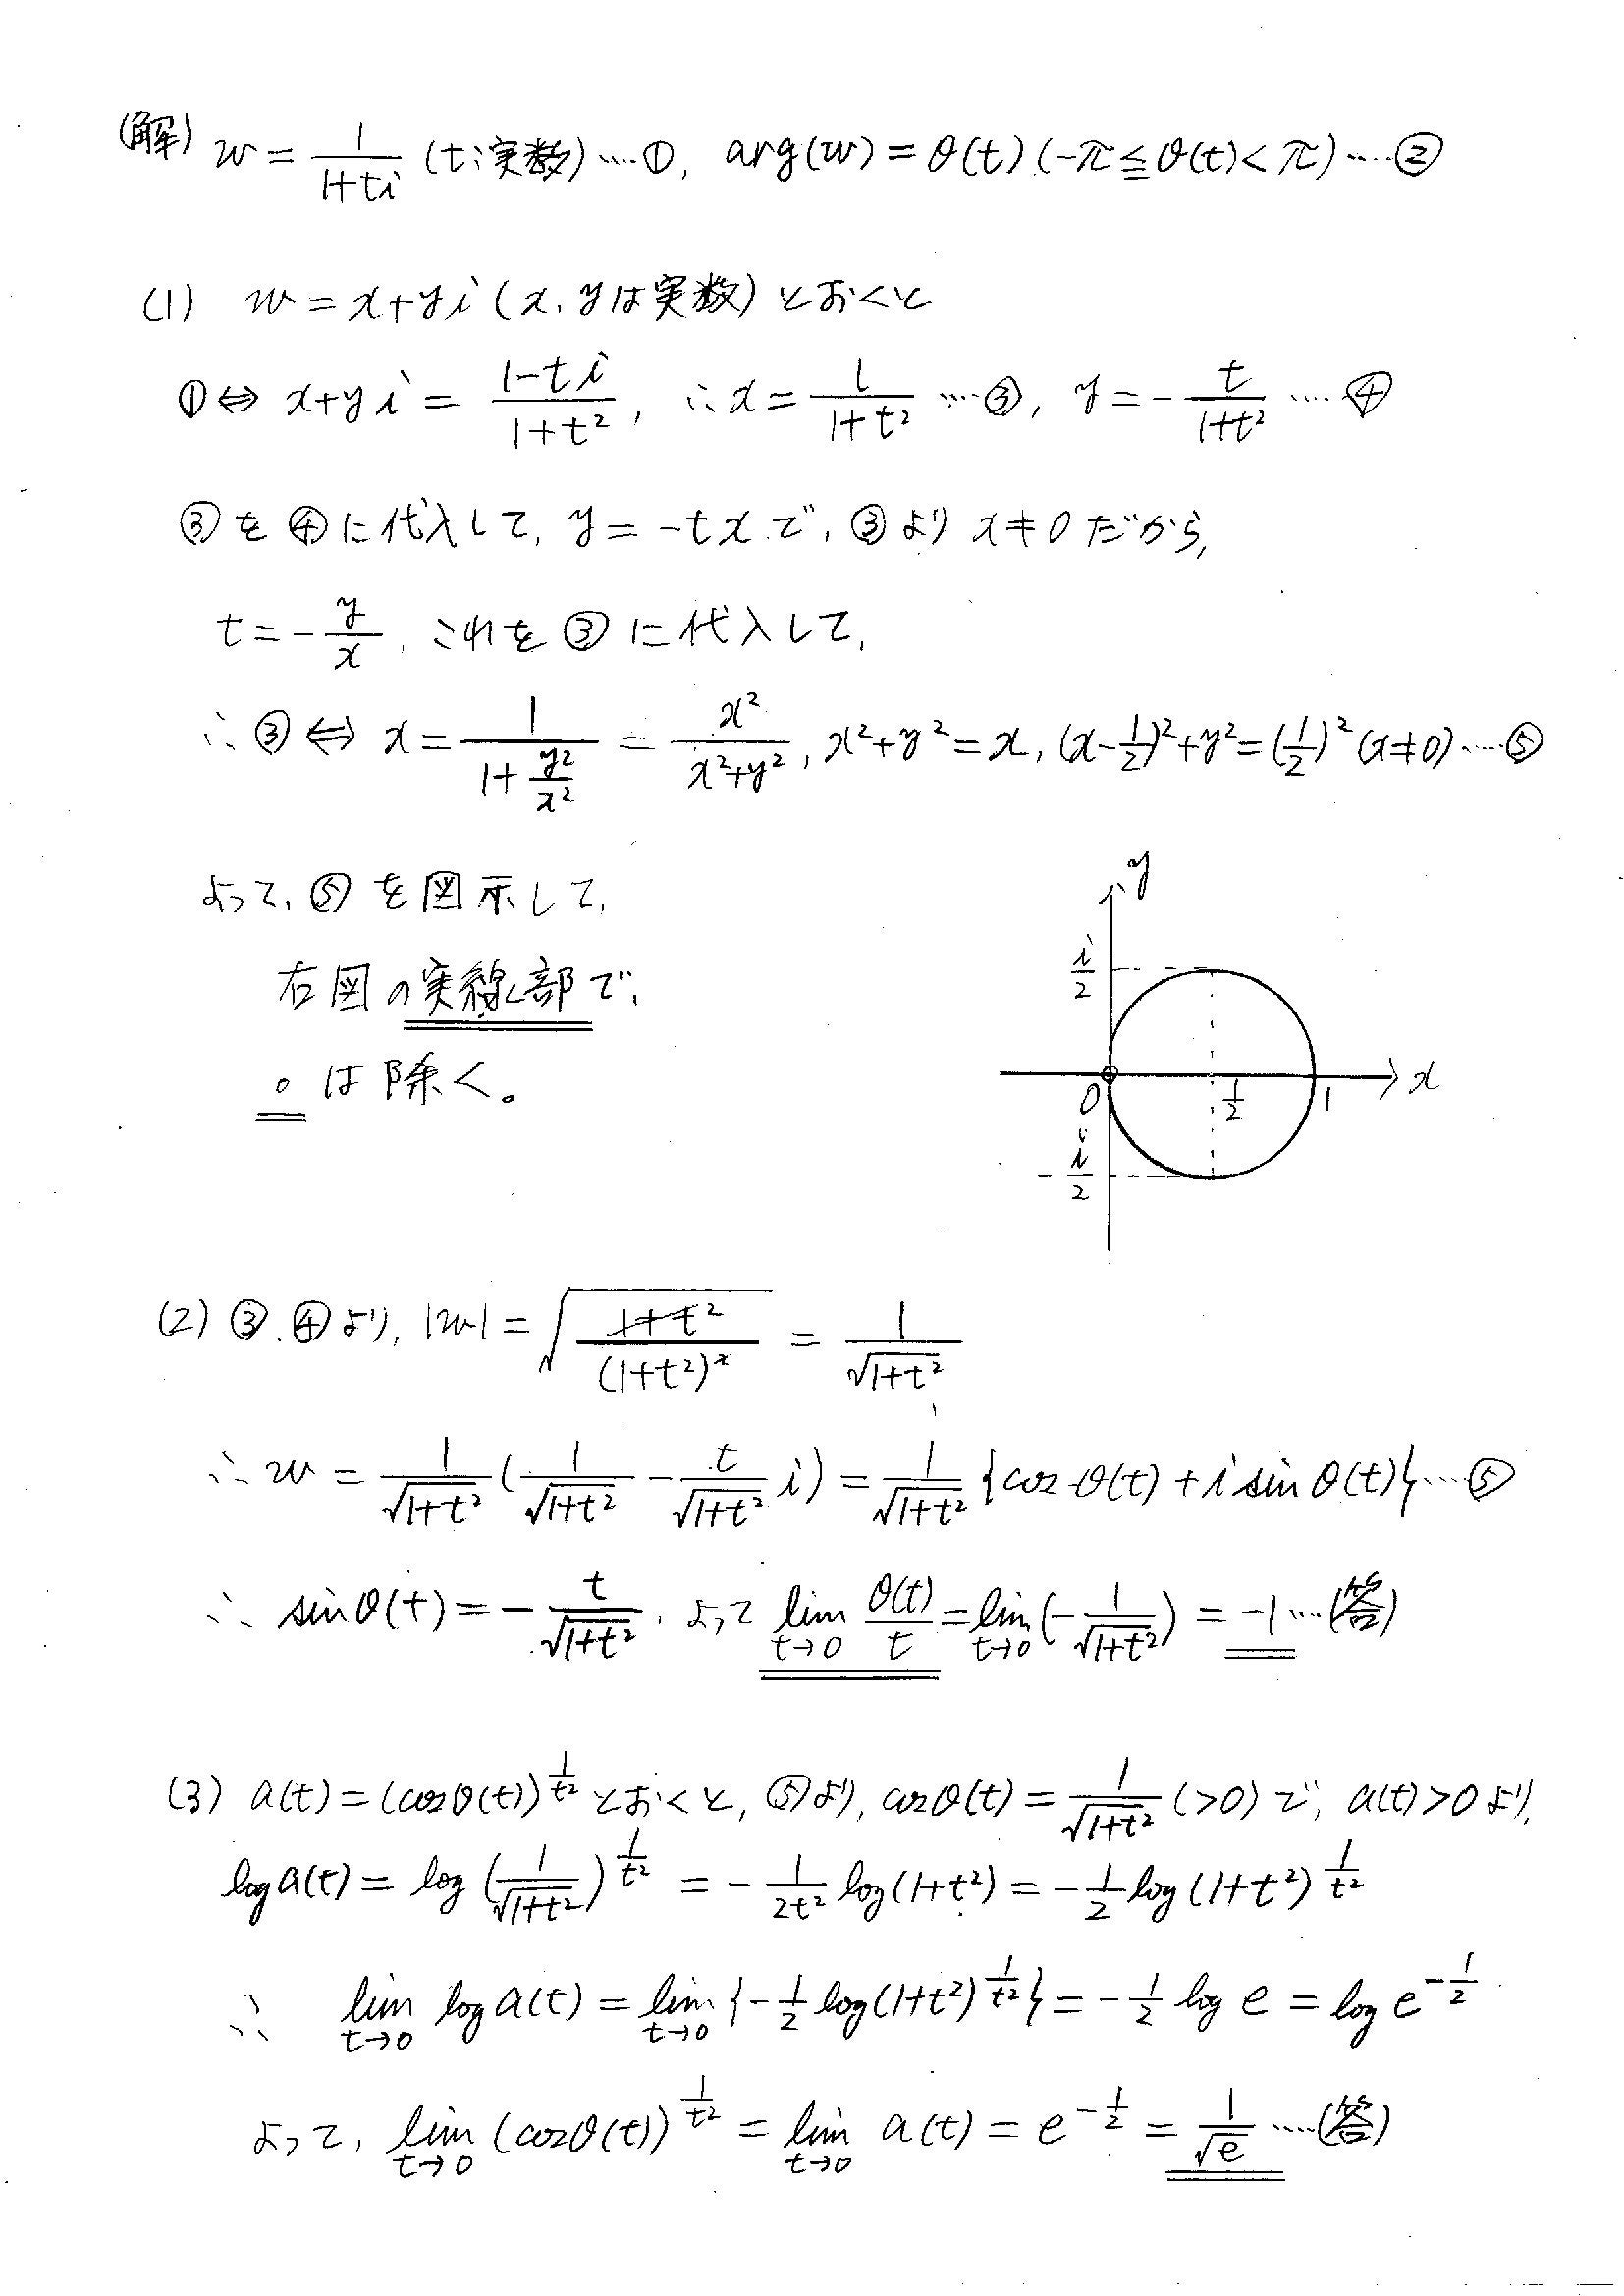 (解) w = 1/(1+ti) (t:実数)……①, arg(w) = θ(t) (-π≦θ(t)<π)……②
(1) w = x+yi (x, yは実数) とおくと
①⇔ x+yi = (1-ti)/(1+t²), ∴x = 1/(1+t²) ……③, y = -t/(1+t²) ……④
③を④に代入して, y = -tx で, ③より x≠0 だから,
t = -y/x, これを③に代入して,
∴③⇔ x = 1/(1+y²/x²) = x²/(x²+y²), x²+y² = x, (x-1/2)²+y² = (1/2)² (x≠0)……⑤
よって, ⑤を図示して,
右図の実線部で,
○は除く。
y
i/2
O
1/2
1
x
-i/2
(2) ③, ④より, |w| = √((1+t²)/(1+t²)²) = 1/√(1+t²)
∴ w = 1/√(1+t²) (1/√(1+t²) - t/√(1+t²) i) = 1/√(1+t²) {cosθ(t) + i sinθ(t)}……⑤
∴ sinθ(t) = -t/√(1+t²), よって lim t→0 θ(t)/t = lim t→0 (-1/√(1+t²)) = -1 ……(答)
(3) a(t) = (cosθ(t))^(1/t²) とおくと, ⑤より, cosθ(t) = 1/√(1+t²) (>0) で, a(t)>0 より,
log a(t) = log (1/√(1+t²))^(1/t²) = -1/(2t²) log(1+t²) = -1/2 log(1+t²)^(1/t²)
∴ lim t→0 log a(t) = lim t→0 {-1/2 log(1+t²)^(1/t²)} = -1/2 log e = log e^(-1/2)
よって, lim t→0 (cosθ(t))^(1/t²) = lim t→0 a(t) = e^(-1/2) = 1/√e ……(答)